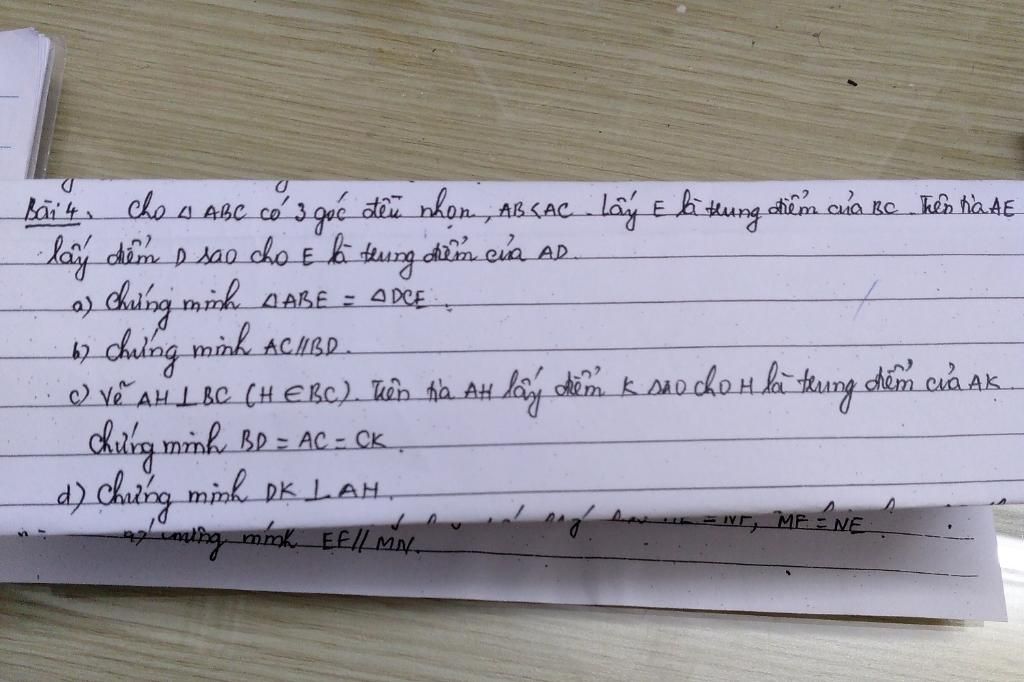 Bài 4. Cho △ ABC có 3 góc đều nhọn, AB<AC. Lấy E là trung điểm của BC. Trên tia AE
lấy điểm D sao cho E là trung điểm của AD.
a) Chứng minh △ABE = △DCE.
b) Chứng minh AC//BD.
c) Vẽ AH⊥BC (H∈BC). Trên tia AH lấy điểm K sao cho H là trung điểm của AK.
Chứng minh BD = AC = CK.
d) Chứng minh DK⊥AH.
= NF, MF = NE.
minh EF//MN.